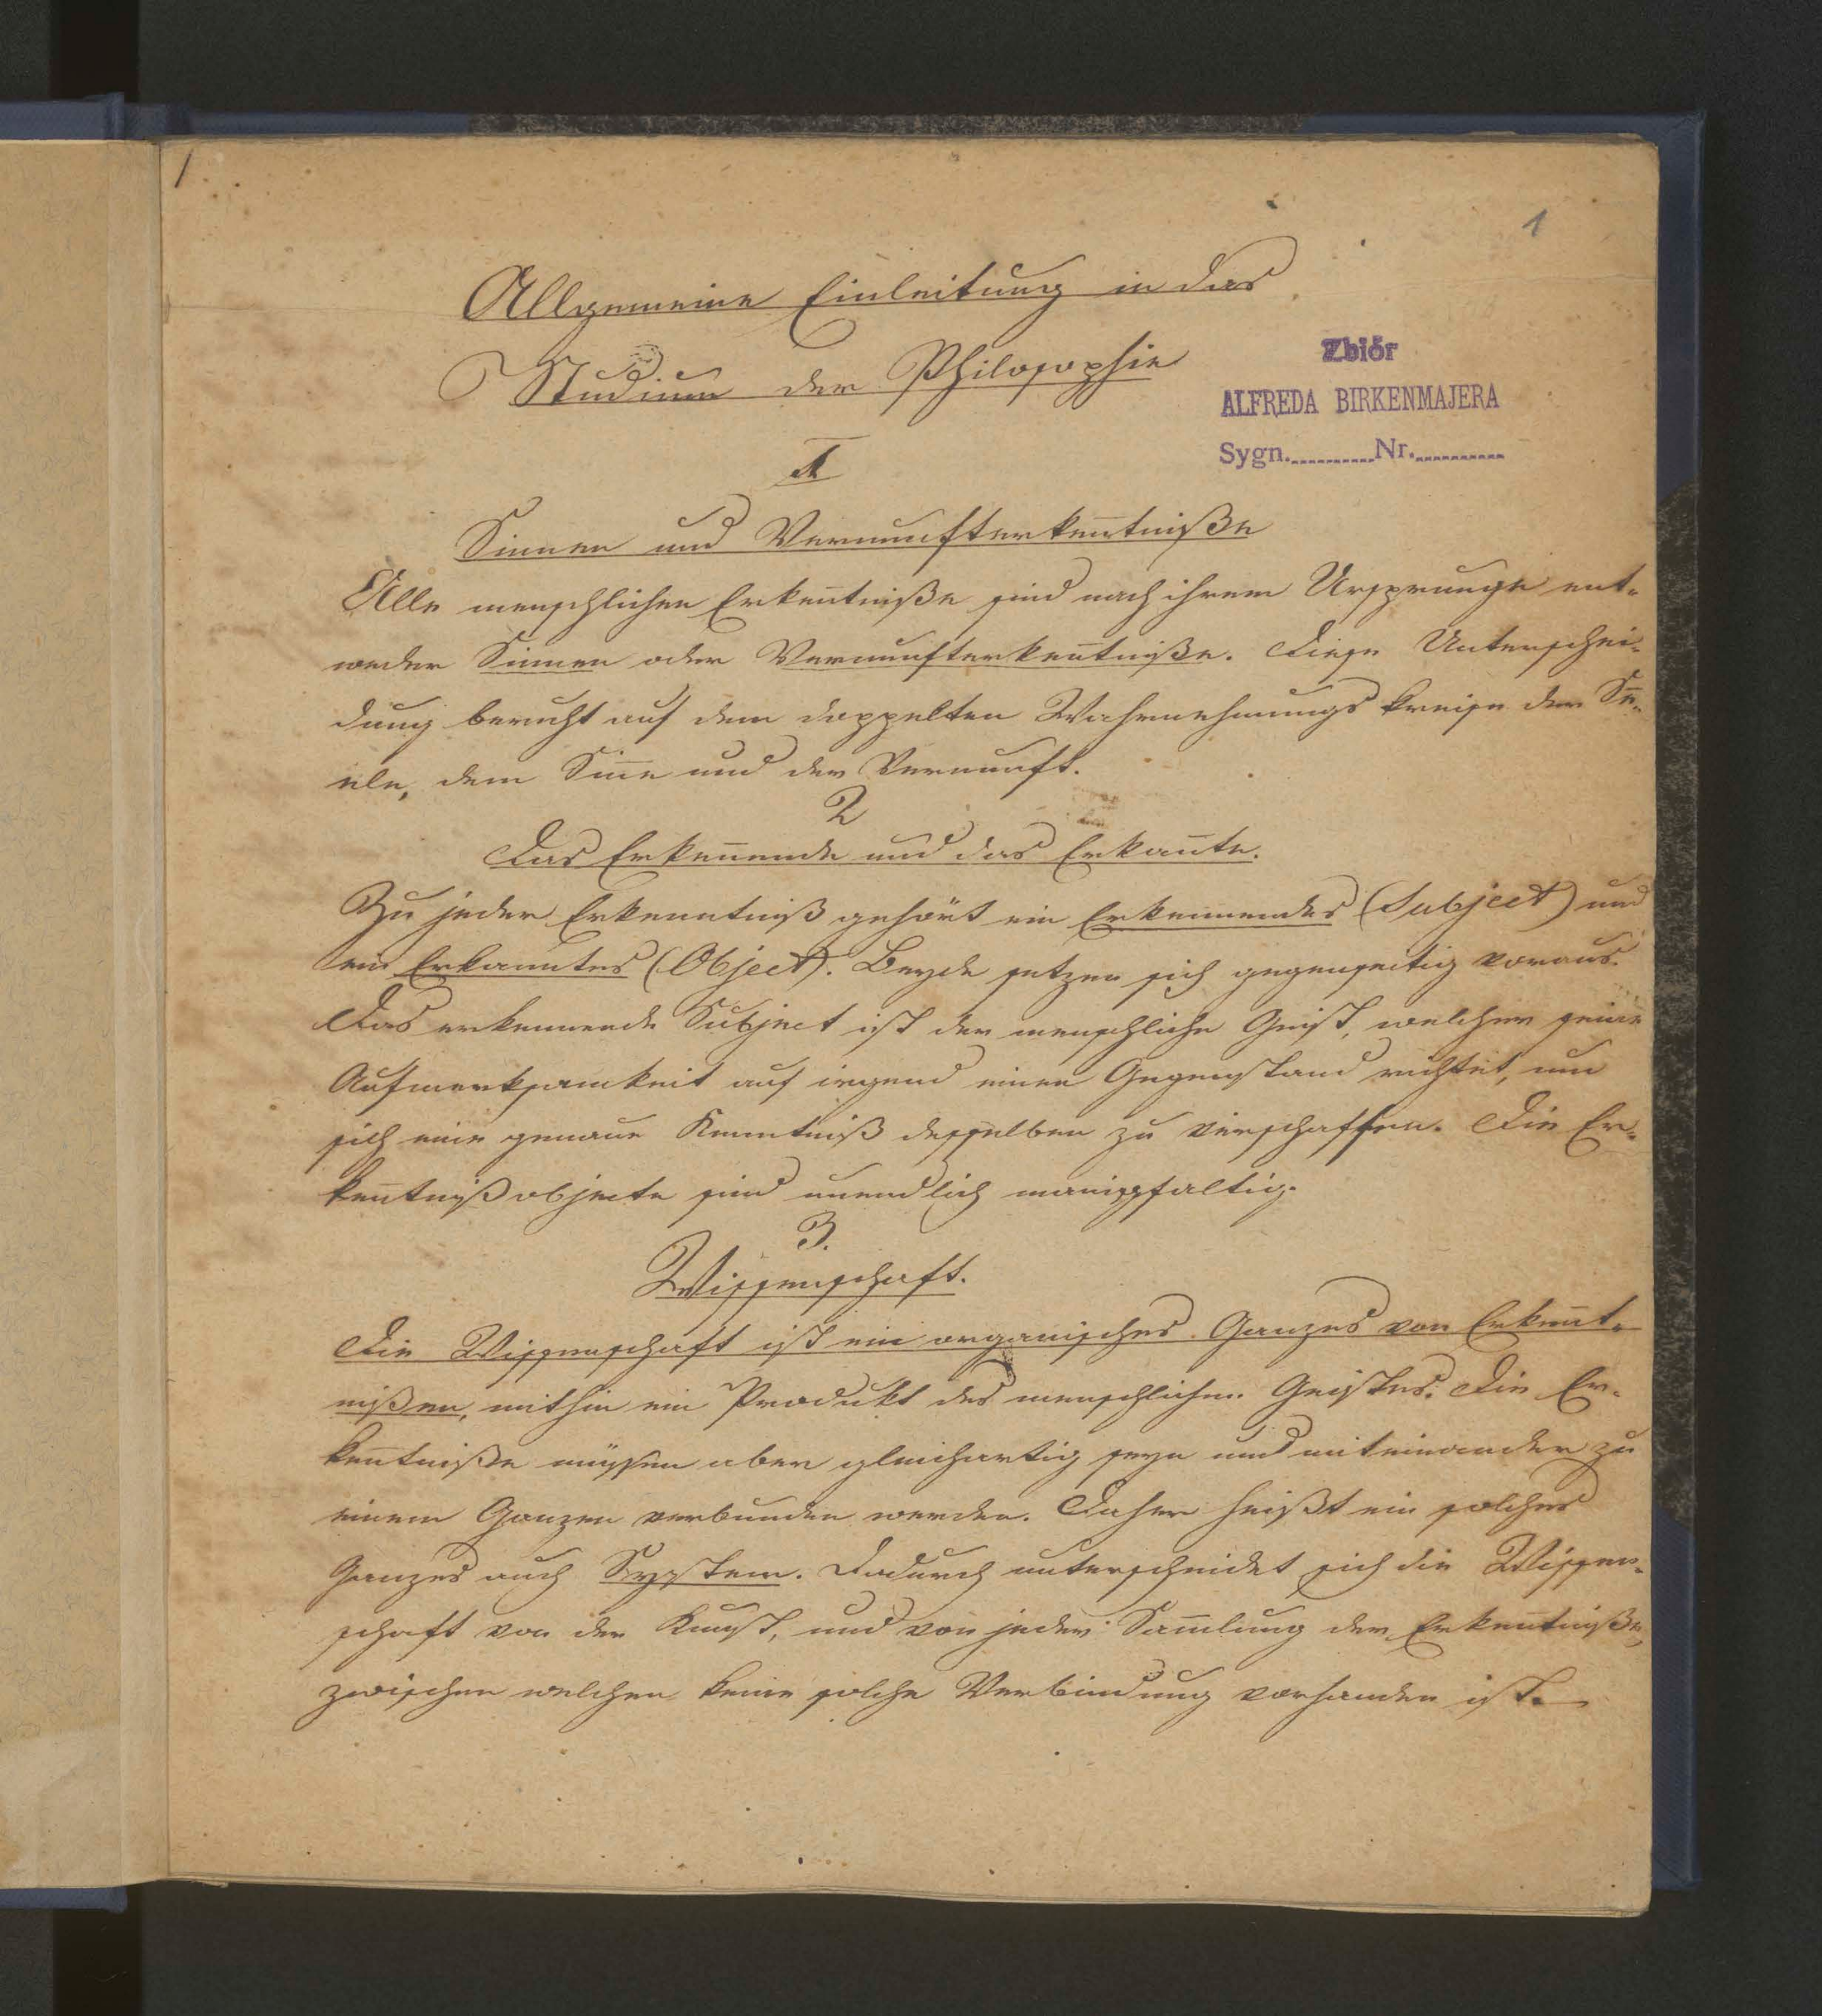 1
Allgemeine Einleitung in das
Studium der Philosophie
Zbiór
ALFREDA BIRKENMAJERA
Sygn. Nr.
1
Sinnen und Vernunfterkeñtniße
Alle menschlichen Erkeñtniße sind nach ihrem Ursprunge ent-
weder Sinnen oder Vernunfterkeñtniße. Diese Unterschei-
dung beruht auf dem doppelten Wahrnehmungskreise der Se-
ele, dem Siñe und der Vernunft.
2
Das Erkeñende und das Erkañte.
Zu jeder Erkenntniß gehört ein Erkennendes (Subject) und
ein Erkanntes (Object). Beyde setzen sich gegenseitig voraus.
Das erkennende Subject ist der menschliche Geist, welcher seine
Aufmerksamkeit auf irgend einen Gegenstand richtet, um
sich eine genaue Kenntniß desselben zu verschaffen. Die Er-
keñtnißobjecte sind unendlich manigfaltig.
3.
Wissenschaft.
Die Wissenschaft ist ein organisches Ganzes von Erkeñt-
nißen, mithin ein Produkt des menschlichen Geistes. Die Er-
keñtniße müssen aber gleichartig seyn und miteinander zu
einem Ganzen verbunden werden. Daher heißt ein solches
Ganzes auch System. Dadurch unterscheidet sich die Wissen-
schaft von der Kunst, und von jeder Sam̄lung der Erkeñtniße,
zwischen welchen keine solche Verbindung vorhanden ist.